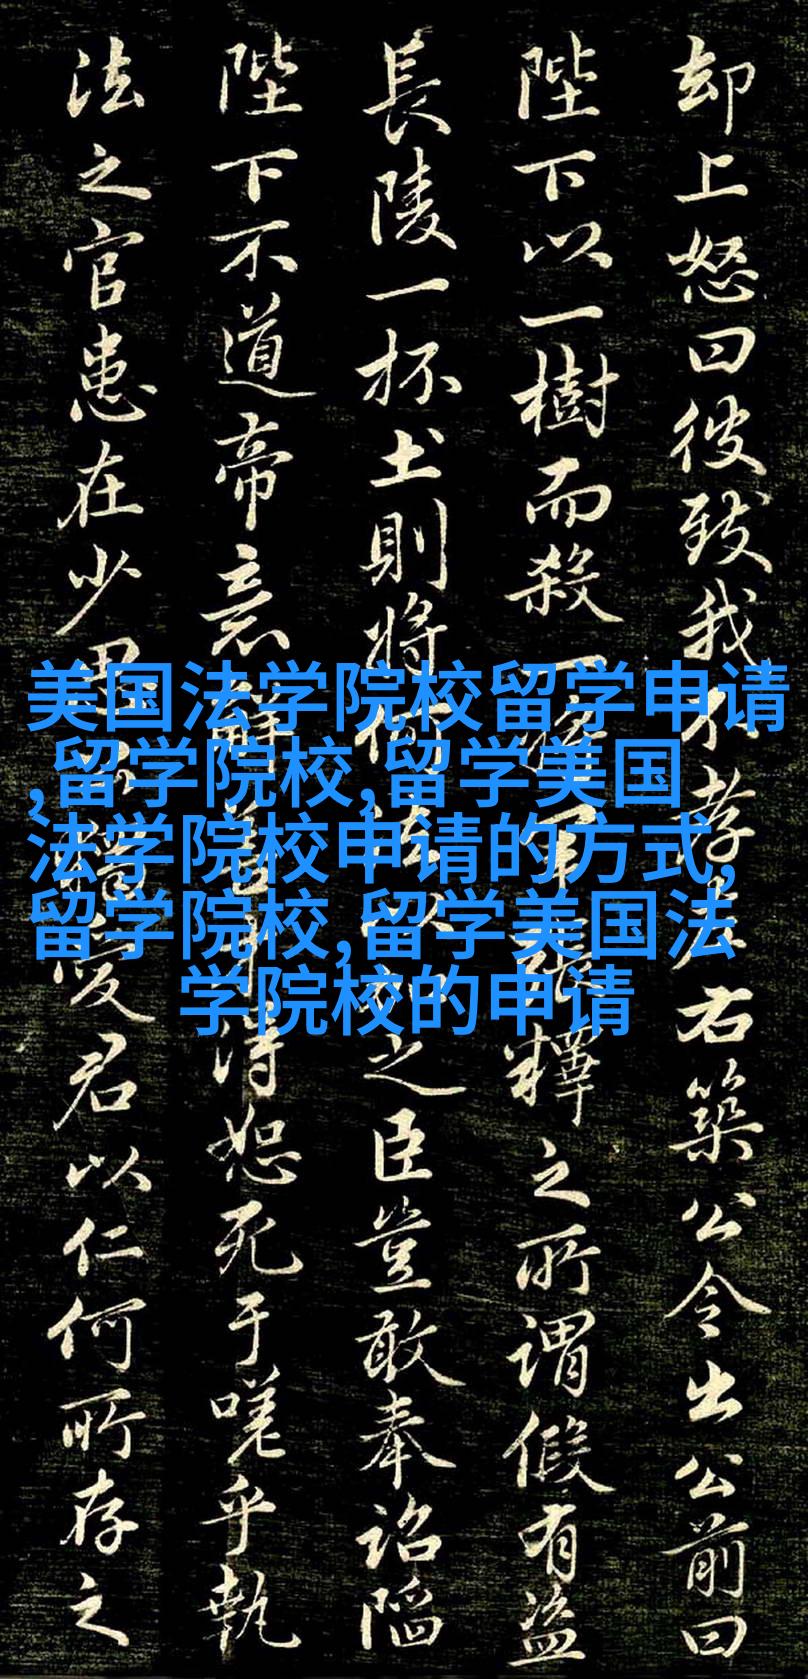 却上怒曰彼致我不孝右築公令出公前曰
陛下以一樹而殺一軍釋之所謂假有盜
長陵一抔土則將何法以之臣豈敢奉詔陷
陛下不道帝意解得恕死于嗟乎執
法之官患在少恩愛君以仁何所存之
美国法学院校留学申请
,留学院校,留学美国
法学院校申请的方式,
留学院校,留学美国法
学院校的申请